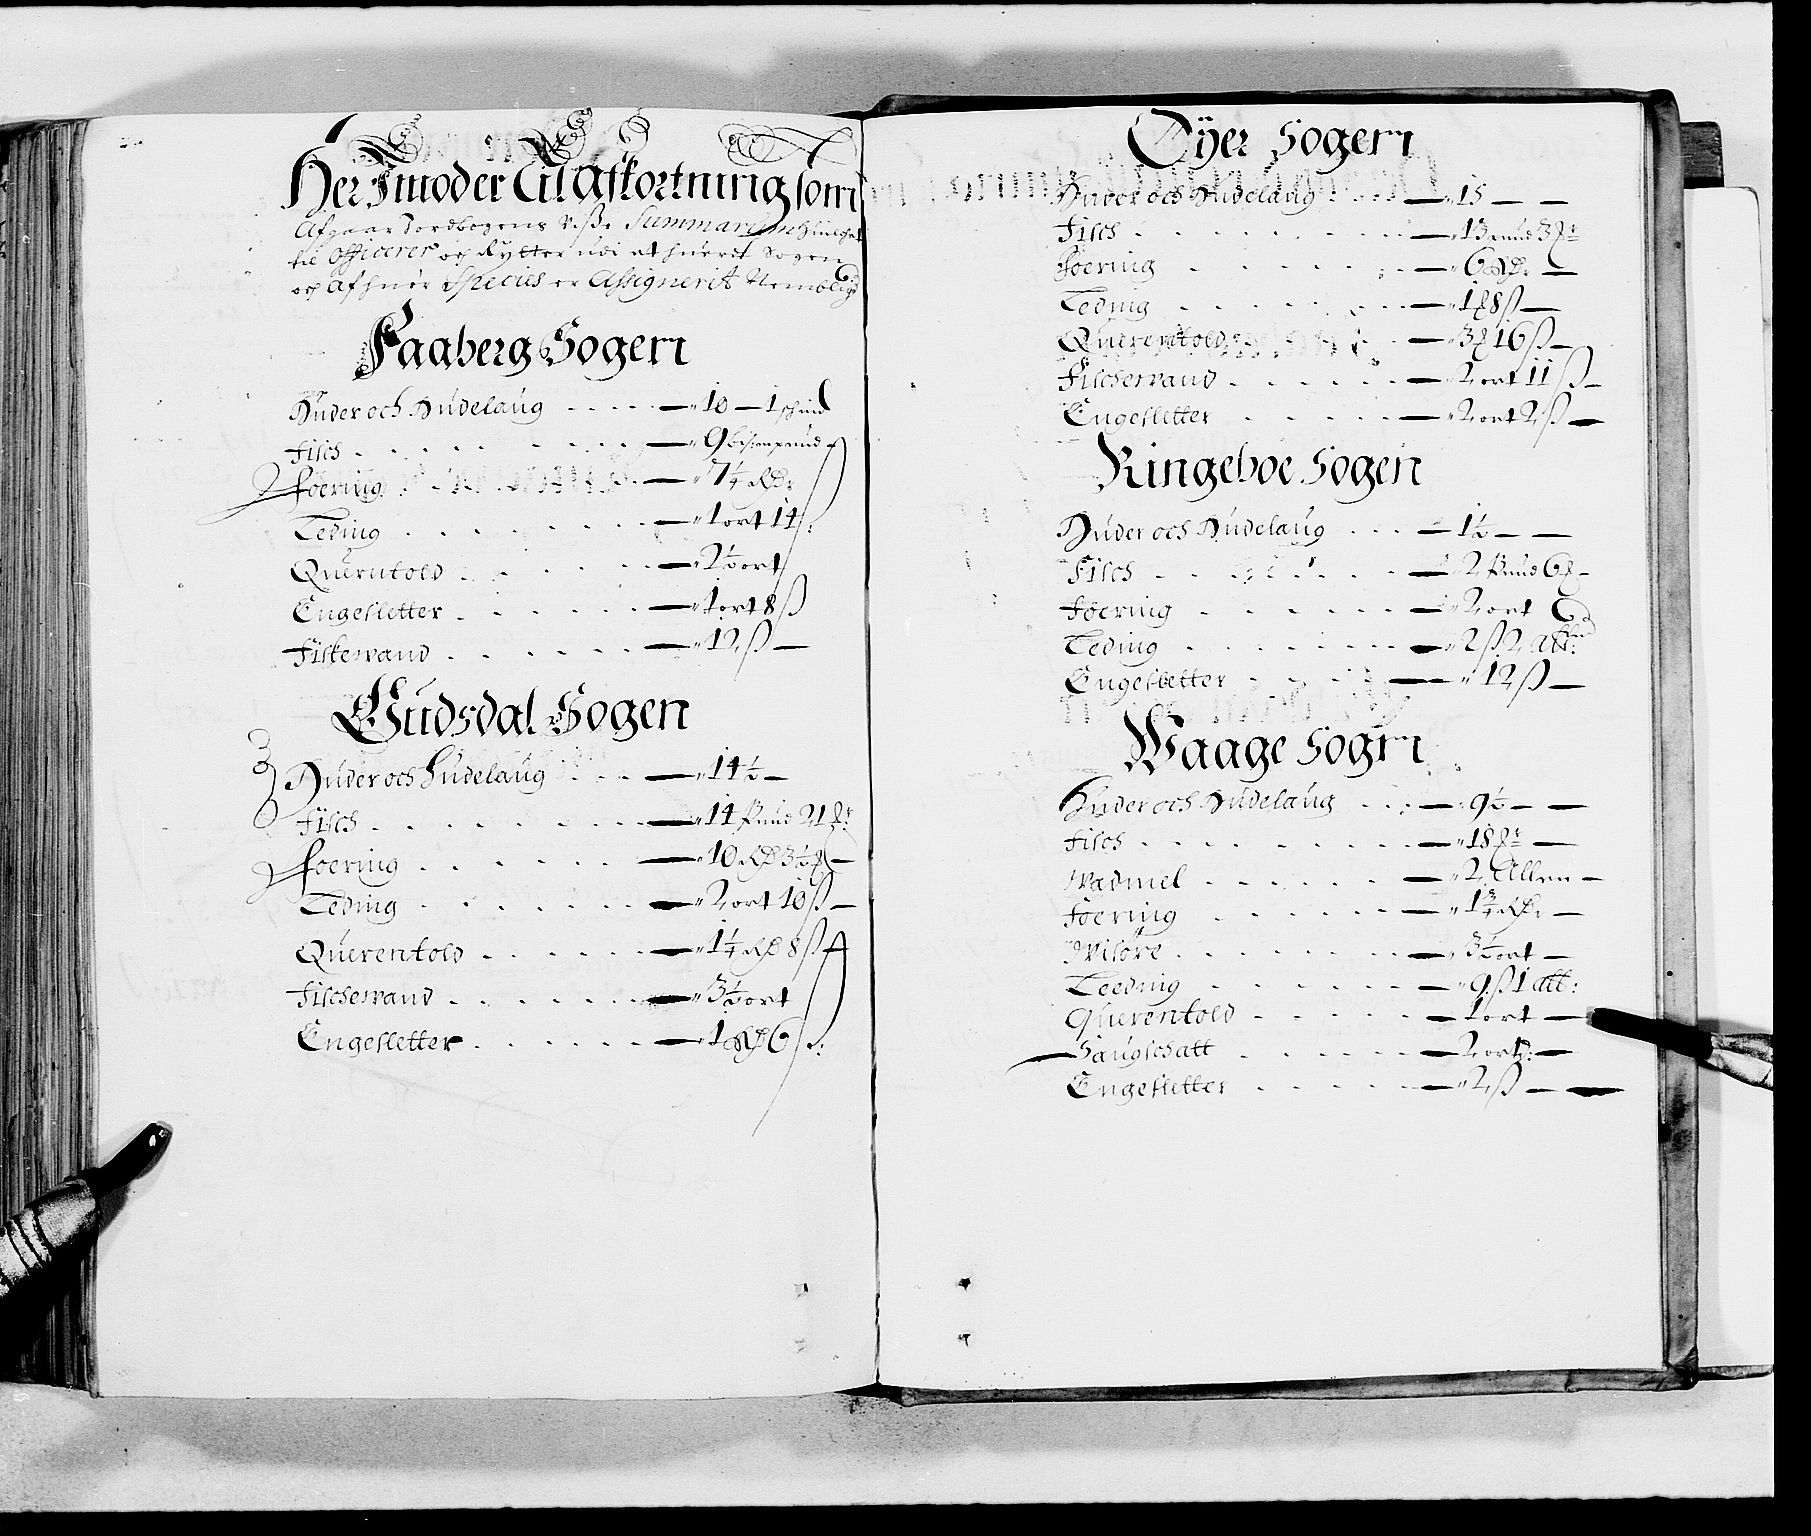 Her Imoder Til Afkortning som
Afgaar Jordbogens Visse Summarum
til Officerer och Rytter udi et huert Sogen
och Af huer Species er Assignerit Nemblig
Faaberg Sogen
Huder och Hudelaug - - - - - — " 10 — 1 schind
Fisch . . . . . . — " 9
Foering . . . . . — " 7¼ RD:
Leding . . . . . — " 1 ort 14 ß:
Querntold . . . . . — " 2½ ort
Engesletter . . . . . — " 1 ort 8 ß
Fiskevand . . . . . — " 12 ß —
Gudsdal Sogen
Huder och Hudelaug . . . — " 14½ —
Fisch . . . . . . — " 14 Pund 21
Foering . . . . . — " 10 RD 3½ —
Leding . . . . . — " 2 ort 10 ß —
Querentold . . . . . — " 1¼ RD 8 ß
Fischevand . . . . . — " 3½ ort
Engesletter . . . . . — " 1 RD 6 ß:
Öyer Sogen
Huder och Hudelaug . . . — " 15 — —
Fisch . . . . . . — " 13 pund 3
Foering . . . . . — " 6 RD: —
Leding . . . . . — " 1 8 ß —
Querentold . . . . — " 3 16 ß —
Fischevand . . . . . — " 2 ort 11 ß —
Engesletter . . . . . — " 2 ort 2 ß —
Ringeboe Sogen
Huder och Hudelaug . . . — " 1½ — —
Fisch . . . . . . — " 2 Pund 6 —
Foering . . . . . — " 2 ort
Leding . . . . . — " 2 ß 2 alb:
Engesletter . . . . — " 12 ß —
Waage Sogn
Huder och Hudelaug . . . — " 9½ — —
Fisch . . . . . . — " 18 —
Wadmel . . . . . — " 2 Allen —
Foering . . . . . — " 1¾ RD: —
Wisöre . . . . . — " 3½ ort —
Leeding . . . . . — " 9 ß 1 alb:
Querentold . . . . . — " 1 ort —
Saugschatt . . . . . — " 2 ort: —
Engesletter . . . . . — " 2 ß — —